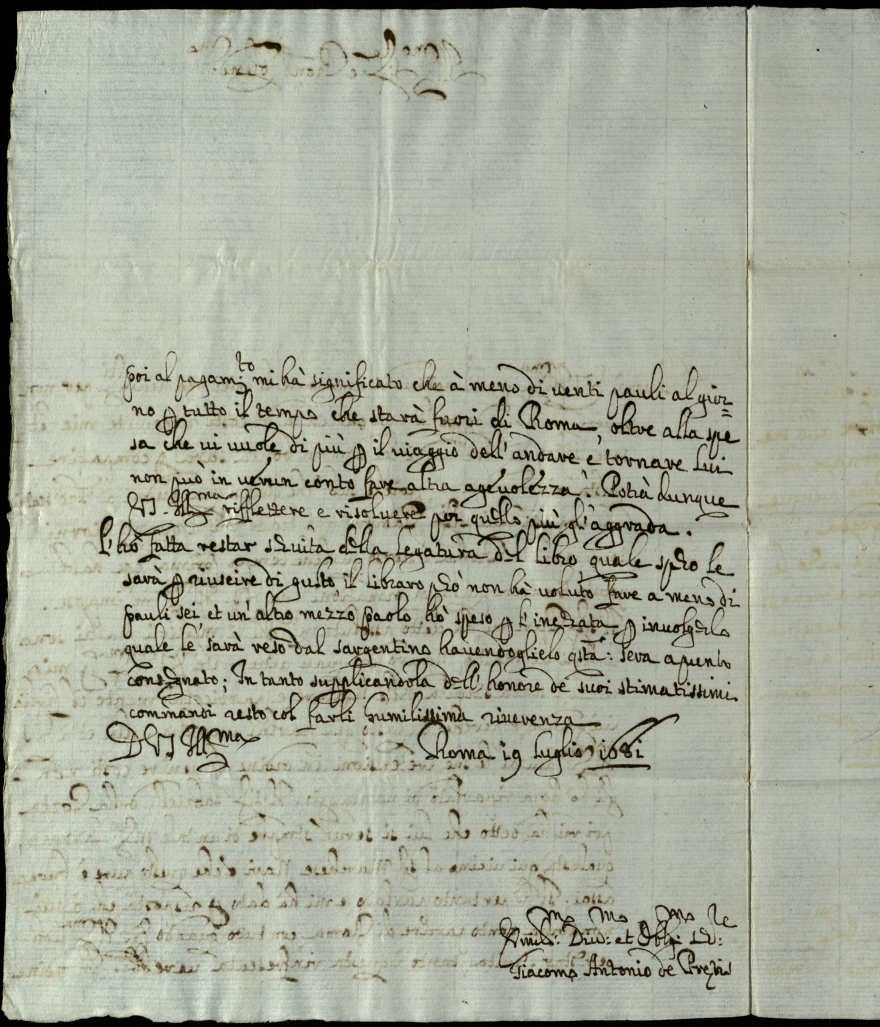 poi al pagam:to mi hà significato che à meno di uenti pauli al gior=
no p tutto il tempo che starà fuori di Roma, oltre alla spe
sa che ui uuole di più p il uiaggio dell'andare e tornare lui
non può in uerun conto fare altra ageuolezza. Potrà dunque
VS. Ill.ma riflettere e risoluere poi quello più gl'aggrada.
L'hò fatta restar seruita della legatura del libro quale spero le
sarà p riuscire di gusto, il libraro però non hà voluto fare a meno di
pauli sei, et un'altro mezzo paolo hò speso p l'incerata p inuolgerlo
quale le sarà reso dal sargentino hauendoglielo qsta: sera apunto
consegnato; In tanto supplicandola dell'honore de suoi stimatissimi
commandi resto col farli humilissima riuerenza
D VS Ill.ma Roma 19 luglio 1681
Humil:mo Diu:mo et Obl:mo Ser:re
Giacomo Antonio de Prezis